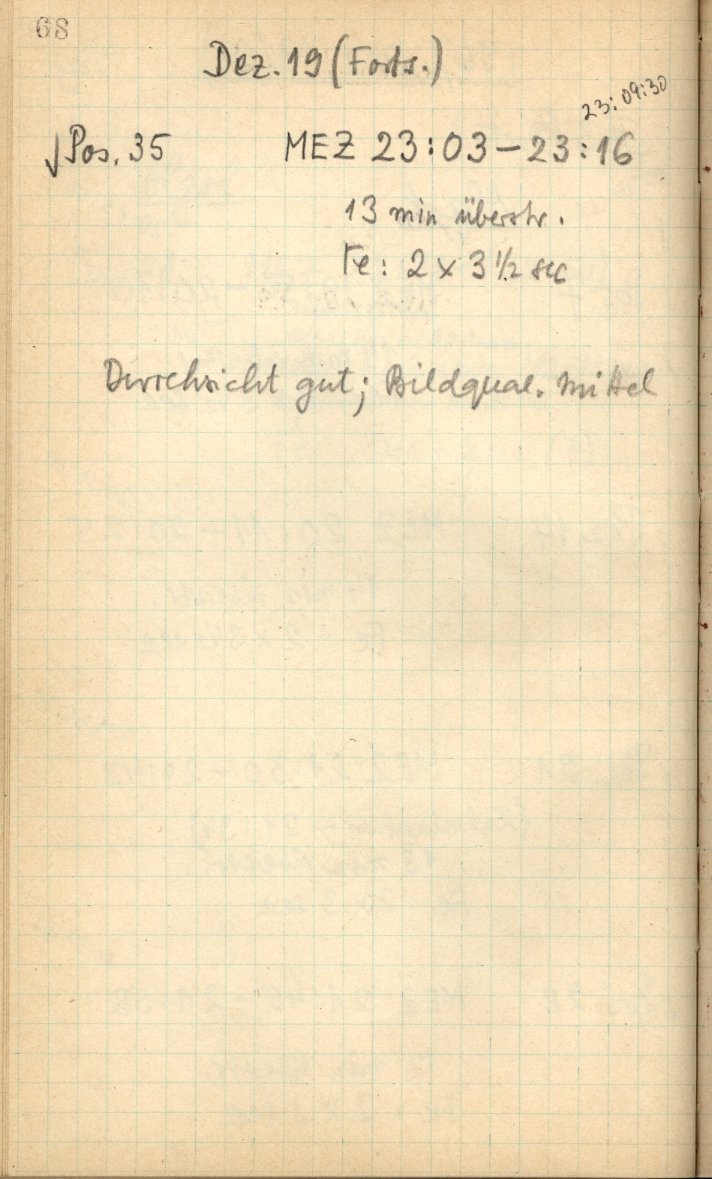 68
Dez. 19 (Forts.)
23:09:30
Pos. 35 MEZ 23:03 – 23:16
13 min überstr.
Fe: 2 x 3 1/2 sec
Durchsicht gut; Bildqual. mittel